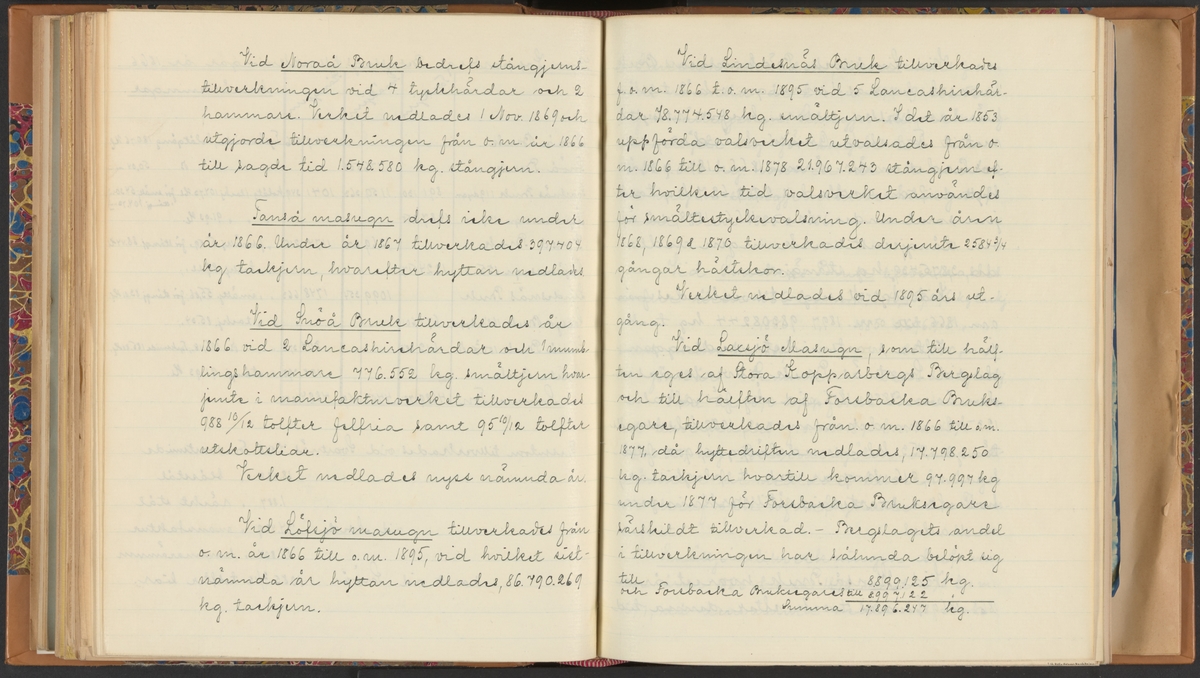 Vid Noraå Bruk bedrefs stångjerns-
tillverkningen vid 4 tyskhärdar och 2
hammare. Verket nedlades 1 Nov. 1869 och
utgjorde tillverkningen från o. m. år 1866
till sagde tid 1.548.580 kg. stångjern.
Tanså masugn drefs icke under
år 1866. Under år 1867 tillverkades 397404
kg tackjern, hvarefter hyttan nedlades
Vid Snöå Bruk tillverkades år
1866 vid 2 Lancashirehärdar och 1 mumb-
lingshammare 776.552 kg. smältjern hvar-
jemte i manufakturverket tillverkades
988 10/12 tolfter felfria samt 95 10/12 tolfter
utskottsliar.
Verket nedlades nyss nämnda år.
Vid Löfsjö masugn tillverkades från
o. m. år 1866 till o. m. 1895, vid hvilket sist-
nämnda år hyttan nedlades, 86.790.269
kg. tackjern.
Vid Lindesnäs Bruk tillverkades
f. o. m. 1866 t. o. m. 1895 vid 5 Lancashirehär-
dar 78.774.548 kg. smältjern. I det år 1853
uppförda valsverket utvalsades från o.
m. 1866 till o. m. 1878 21.967.243 stångjern ef-
ter hvilken tid valsverket användes
för smältstyckevalsning. Under åren
1868, 1869 & 1870 tillverkades derjemte 2584 3/4
gångar hästskor.
Verket nedlades vid 1895 års ut-
gång.
Vid Laxsjö Masugn, som till hälf-
ten eges af Stora Kopparbergs Bergslag
och till hälften af Forsbacka Bruks-
egare, tillverkades från o. m. 1866 till o. m.
1877, då hyttedriften nedlades, 17.798.250
kg. tackjern hvartill kommer 97.997 kg
under 1877 för Forsbacka Bruksegare
särskildt tillverkad. – Bergslagets andel
i tillverkningen har sålunda belöpt sig
till 8899.125 kg.
och Forsbacka Bruksegares till 8997.122
Summa 17.896.247 kg.